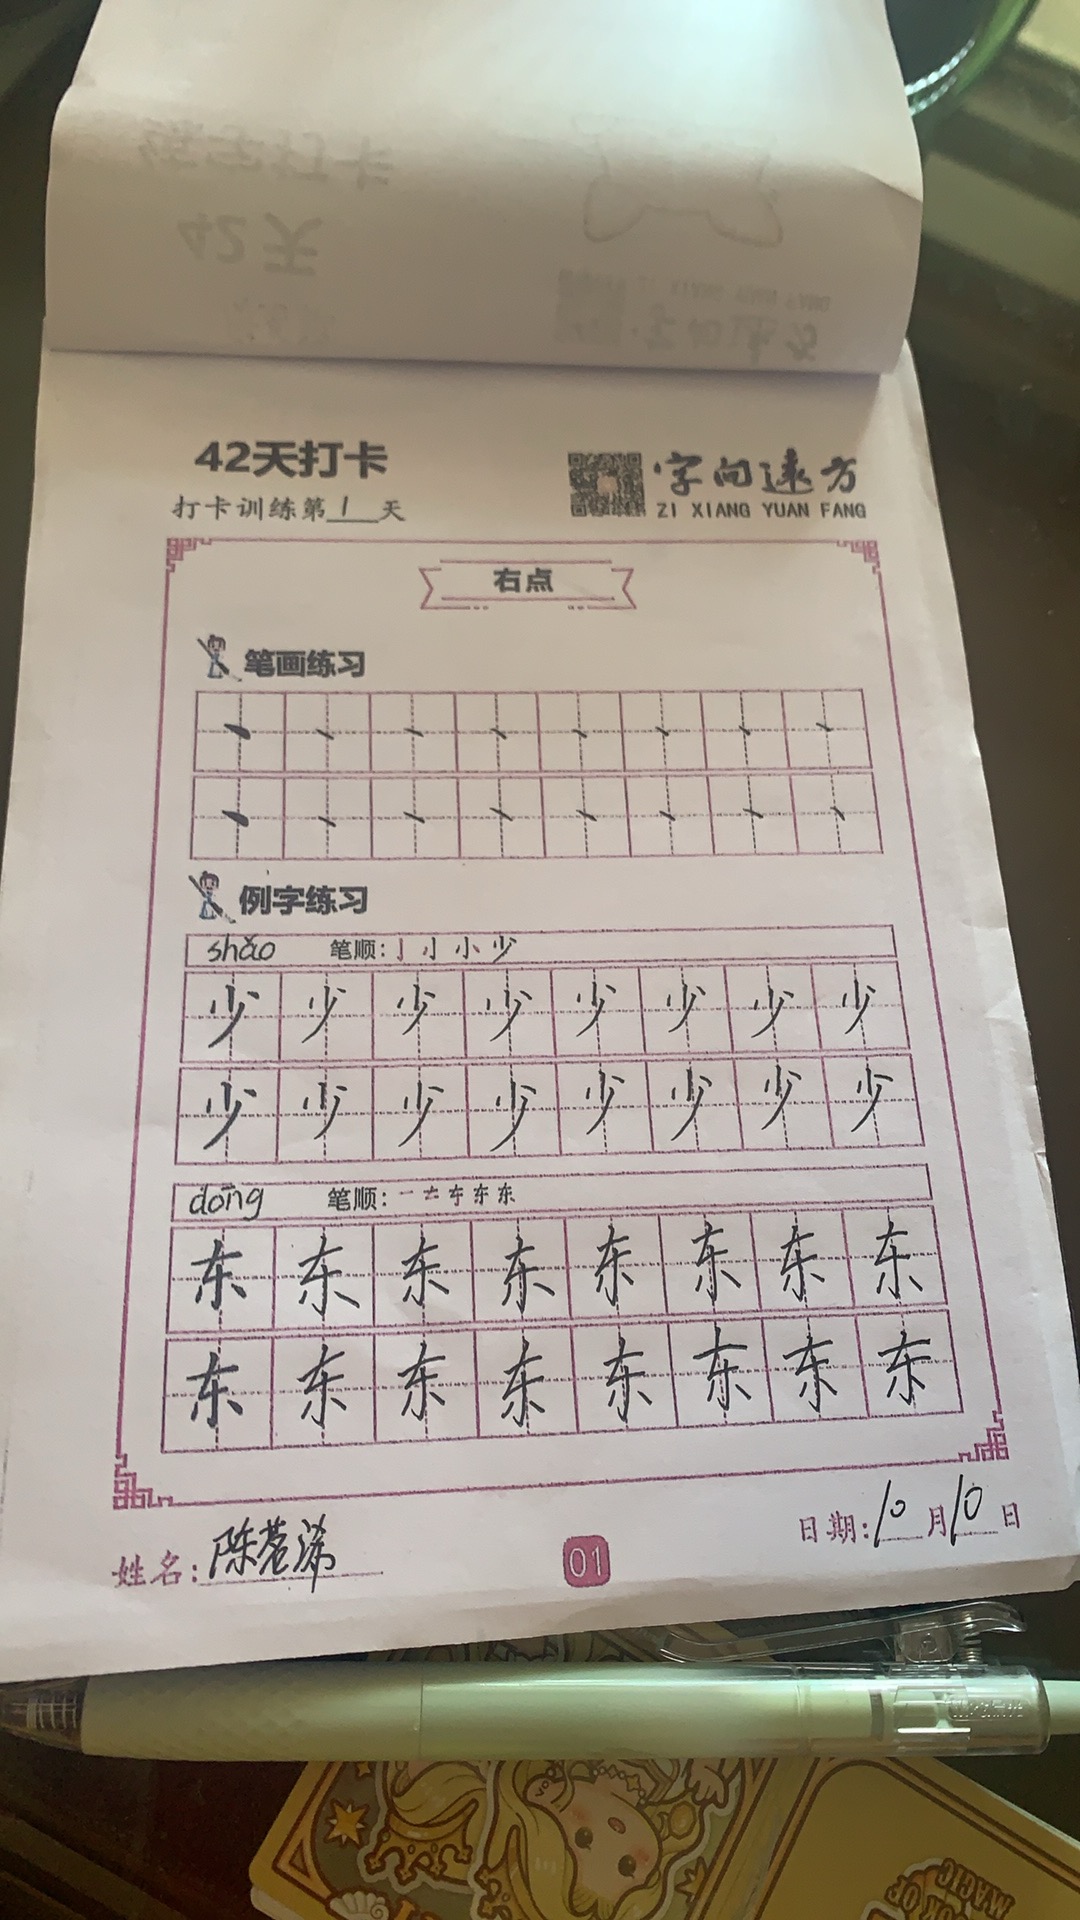 42天打卡
字向远方
打卡训练第1天
ZI XIANG YUAN FANG
右点
笔画练习
例字练习
shǎo 笔顺: 亅 小 小 少
少 少 少 少 少 少 少 少
少 少 少 少 少 少 少 少
dōng 笔顺: 一 东 东
东 东 东 东 东 东 东 东
东 东 东 东 东 东 东 东
姓名: 陈苍涕
01
日期: 10月10日
OK OF
MAGIC